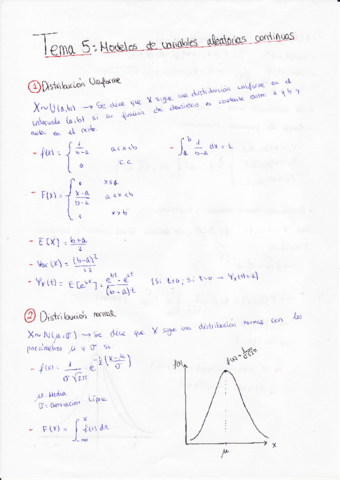 Tema 5: Modelos de variables aleatorias continuas
1 Distribución Uniforme
X~U(a,b) → Se dice que X sigue una distribución uniforme en el
intervalo (a,b) si su función de densidad es constante entre a y b y
nula en el resto.
- f(x) = { 1/(b-a) a<x<b - ∫ₐᵇ 1/(b-a) dx = 1
0 c.c
- F(x) = { 0 x≤a
(x-a)/(b-a) a<x<b
1 x>b
- E[X] = (b+a)/2
- Var(X) = (b-a)²/12
- Ψx(t) = E[e^(xt)] = (e^(bt) - e^(at))/((b-a)t) (Si t≠0; Si t=0 → Ψx(t)=1)
2 Distribución normal
X~N(μ,σ) → Se dice que X sigue una distribución normal con los
parámetros μ y σ si
- f(x) = 1/(σ√2π) · e^(-½((x-μ)/σ)²)
μ: Media
σ: Desviación típica
- F(x) = ∫₋∞ˣ f(t) dt
f(x)
μ
x